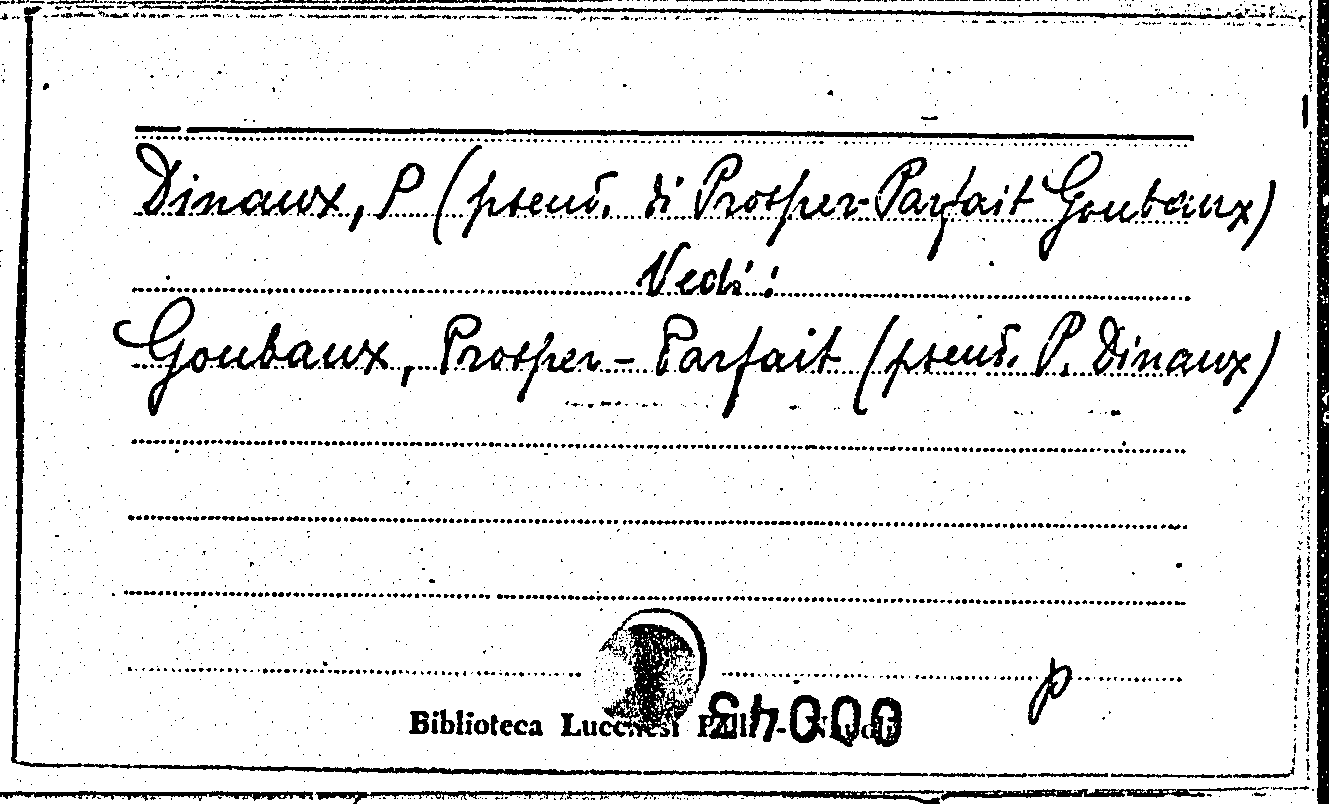 Dinaux, P (pseud. di Prosper-Parfait Goubaux)
Vedi:
Goubaux, Prosper-Parfait (pseud. P. Dinaux)
p
Biblioteca Lucchesi Palli - Napoli
00043